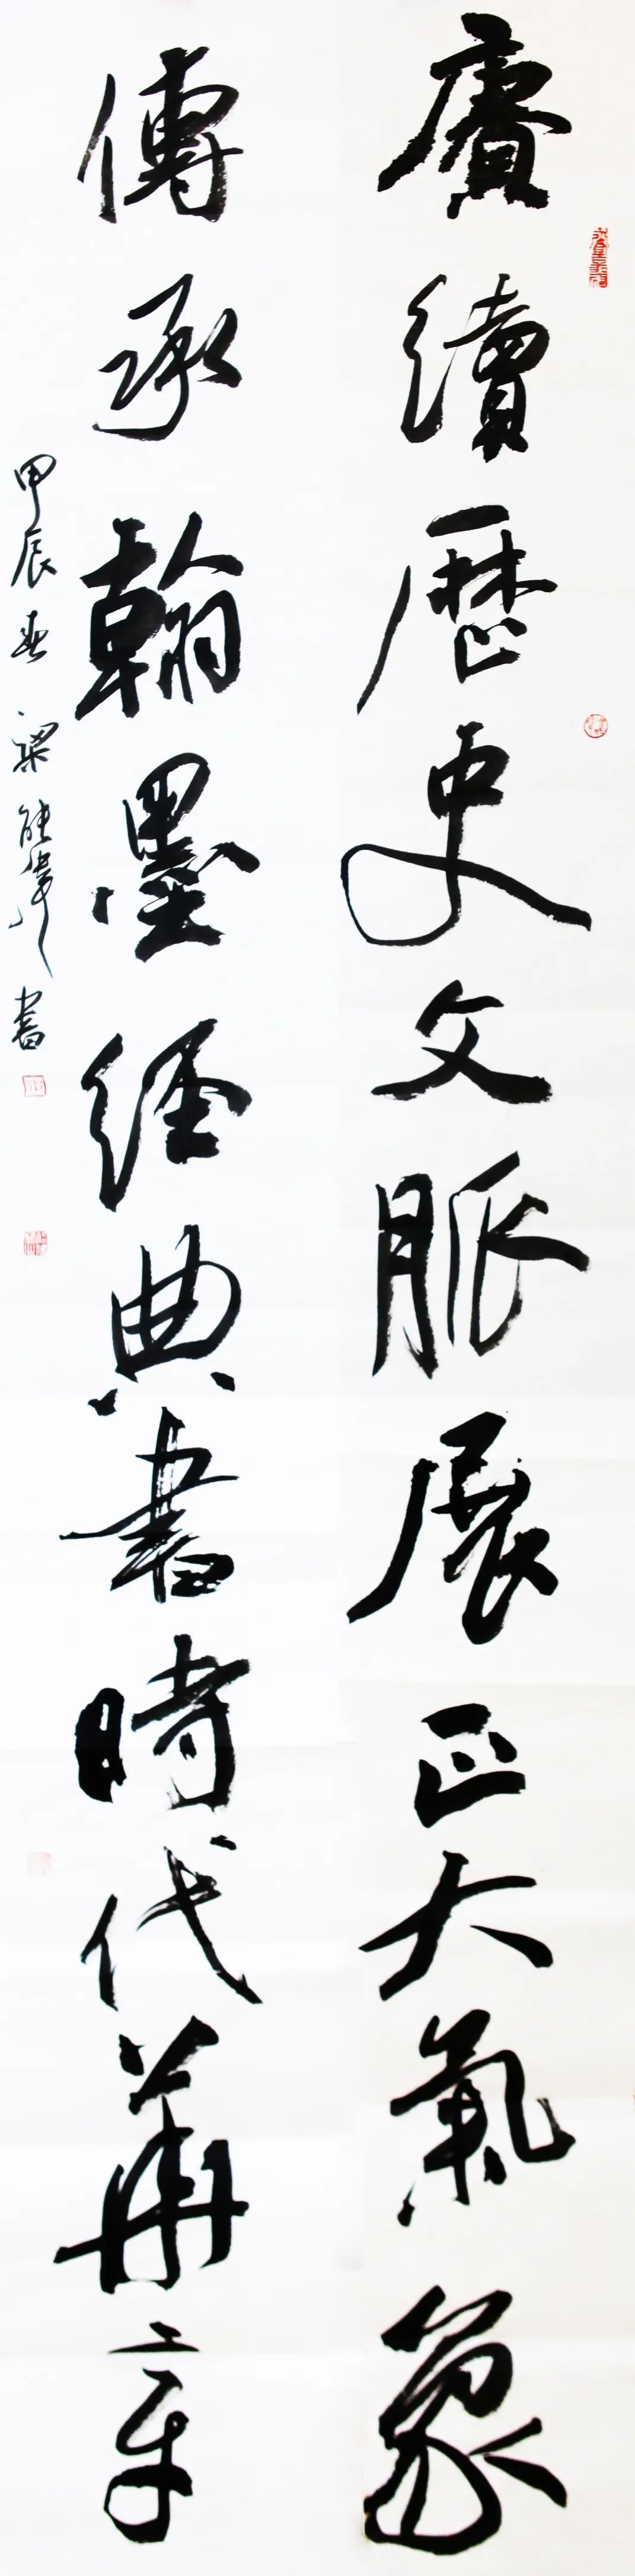 賡續歷史文脈展正大氣象
傳承翰墨經典書時代華章
甲辰春 梁能偉書